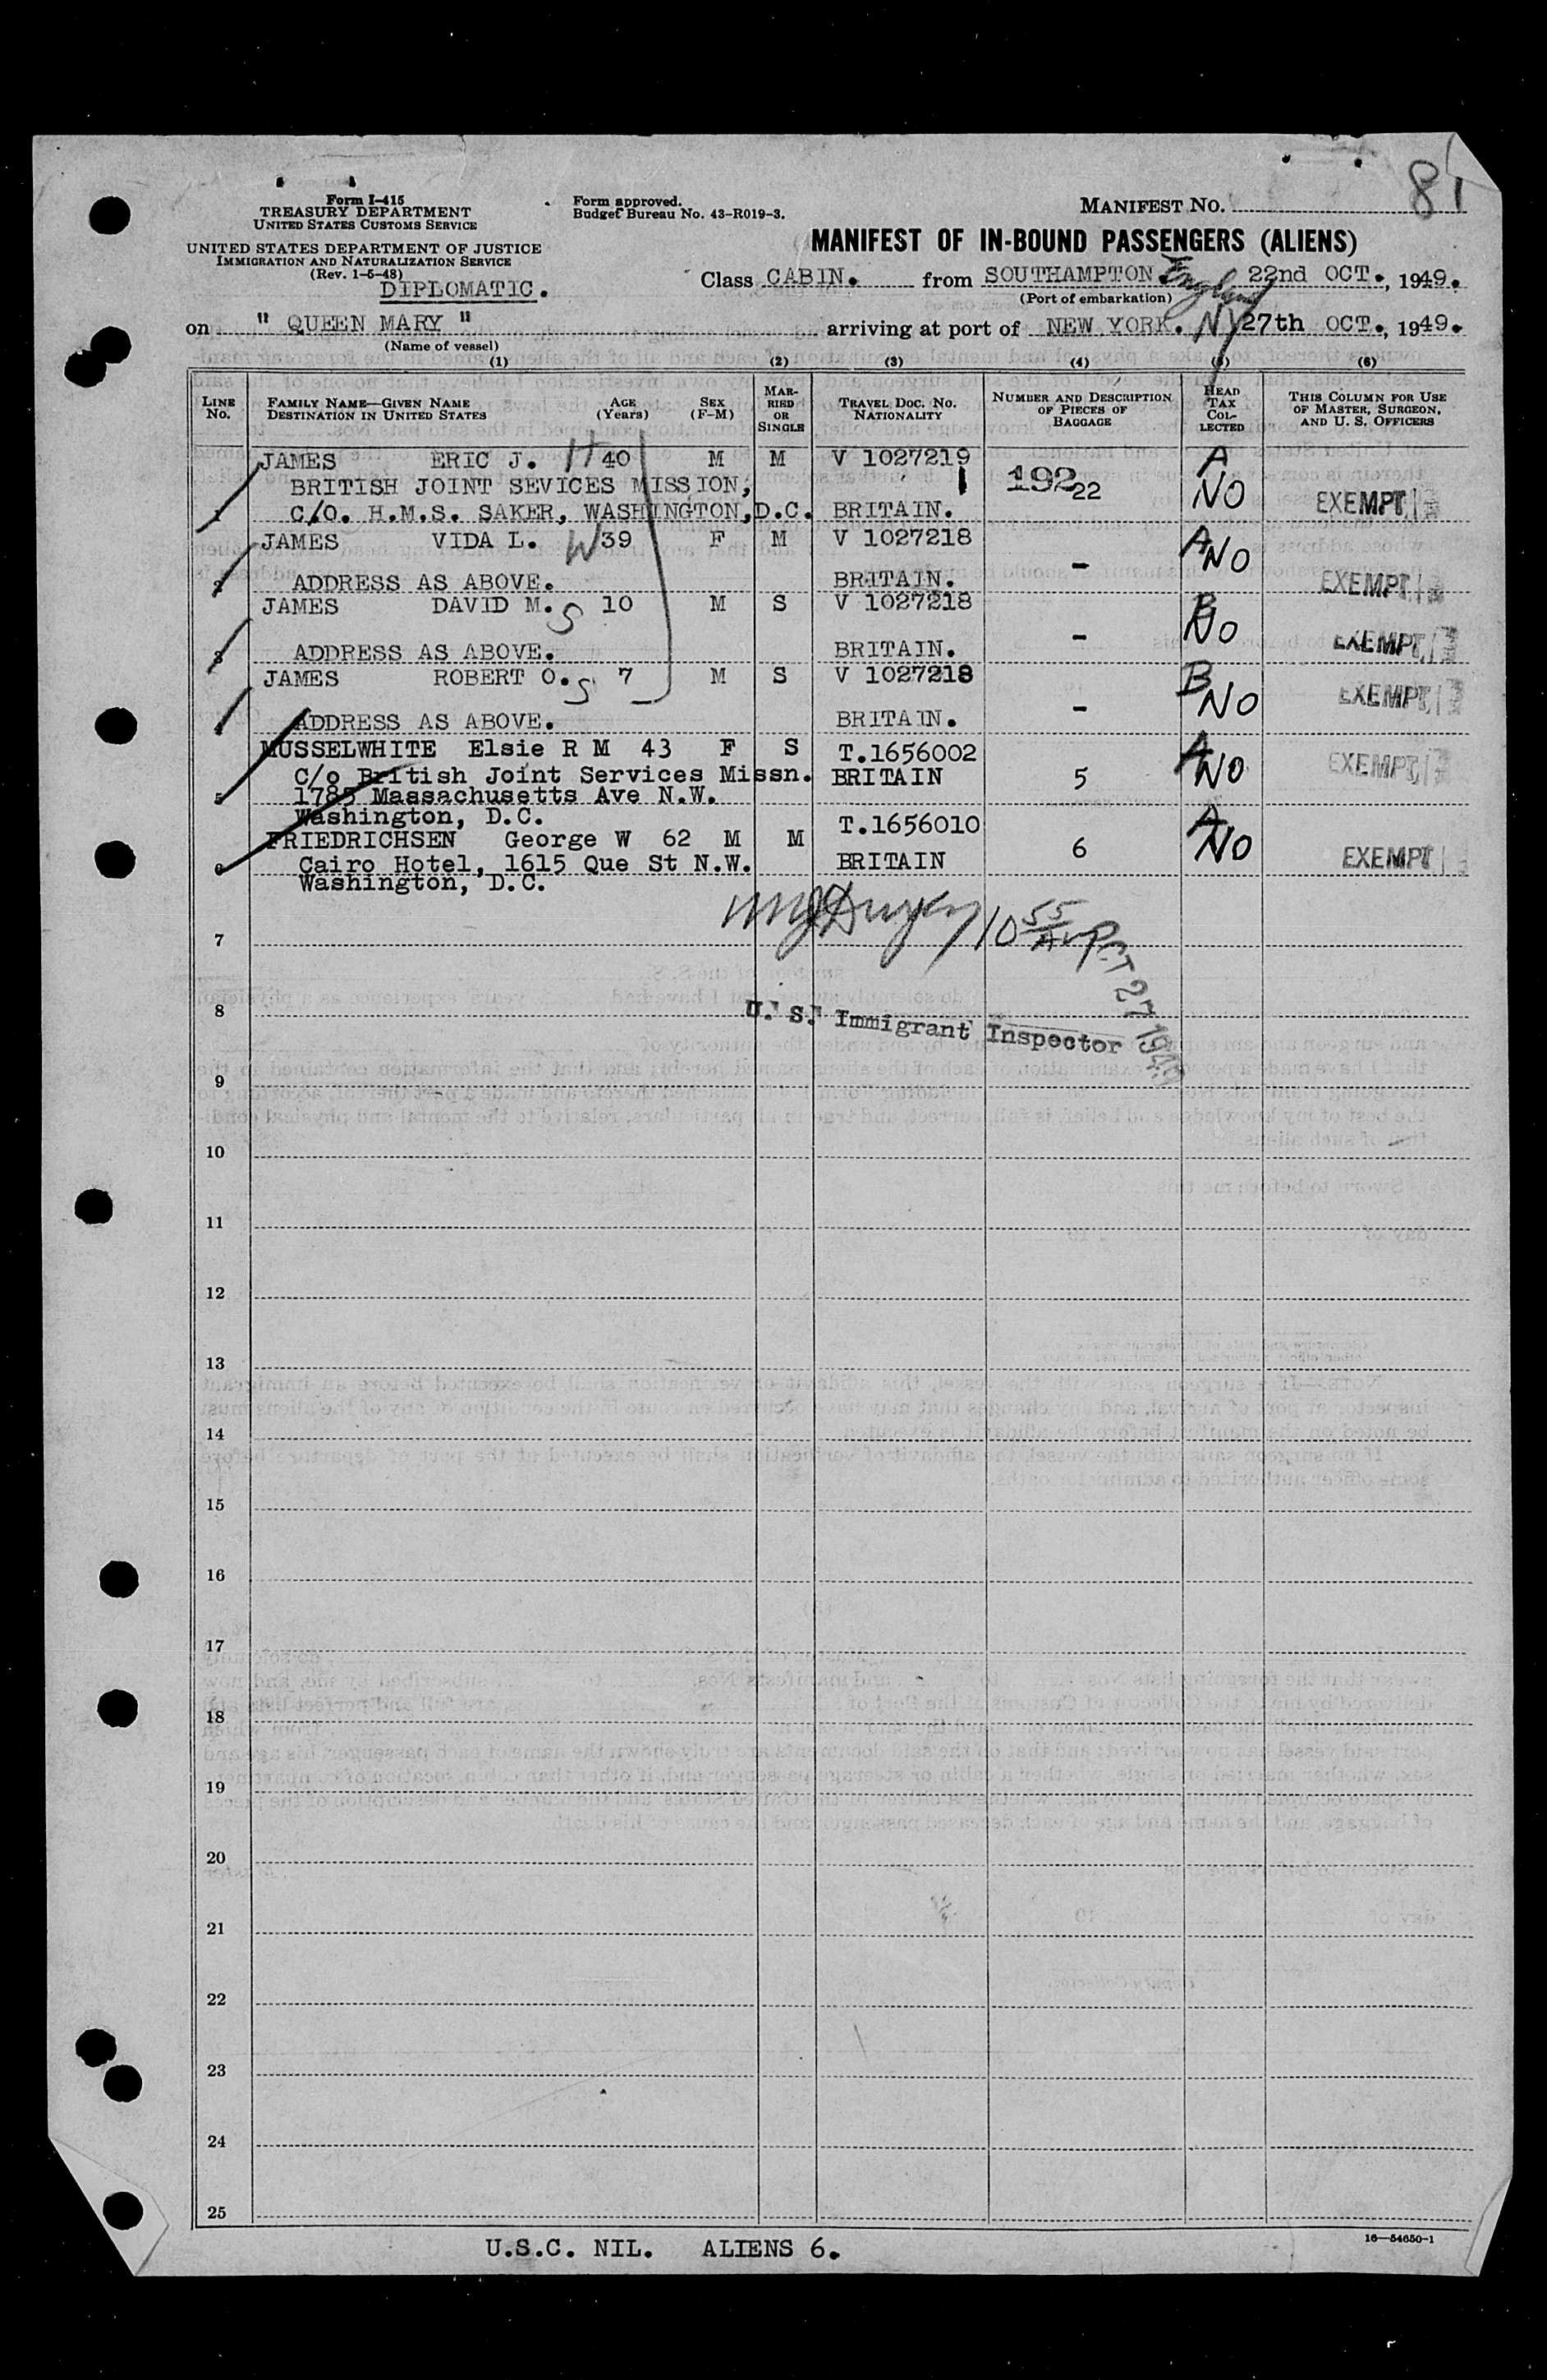 81
Form I-415
TREASURY DEPARTMENT
UNITED STATES CUSTOMS SERVICE
UNITED STATES DEPARTMENT OF JUSTICE
IMMIGRATION AND NATURALIZATION SERVICE
(Rev. 1-5-48)
DIPLOMATIC.
Form approved.
Budget Bureau No. 43-R019-3.
MANIFEST NO.
MANIFEST OF IN-BOUND PASSENGERS (ALIENS)
Class CABIN. from SOUTHAMPTON. England 22nd OCT., 1949.
(Port of embarkation)
on " QUEEN MARY " arriving at port of NEW YORK. NY 27th OCT., 1949.
(Name of vessel)
(1) (2) (3) (4) (5) (6)
LINE No. FAMILY NAME—GIVEN NAME DESTINATION IN UNITED STATES AGE (Years) SEX (F-M) MARRIED OR SINGLE TRAVEL DOC. NO. NATIONALITY NUMBER AND DESCRIPTION OF PIECES OF BAGGAGE HEAD TAX COLLECTED THIS COLUMN FOR USE OF MASTER, SURGEON, AND U. S. OFFICERS
JAMES ERIC J. H 40 M M V 1027219 A
BRITISH JOINT SEVICES MISSION, 192 22 NO EXEMPT
1 C/O. H.M.S. SAKER, WASHINGTON, D.C. BRITAIN.
JAMES VIDA L. W 39 F M V 1027218 - A NO
2 ADDRESS AS ABOVE. BRITAIN. EXEMPT
JAMES DAVID M. S 10 M S V 1027218 - B NO
3 ADDRESS AS ABOVE. BRITAIN. EXEMPT
JAMES ROBERT O. S 7 M S V 1027218 - B NO EXEMPT
4 ADDRESS AS ABOVE. BRITAIN.
MUSSELWHITE Elsie R M 43 F S T.1656002 A
C/o British Joint Services Missn. BRITAIN 5 NO EXEMPT
5 1785 Massachusetts Ave N.W.
Washington, D.C. T.1656010 A
FRIEDRICHSEN George W 62 M M 6 NO
6 Cairo Hotel, 1615 Que St N.W. BRITAIN EXEMPT
Washington, D.C.
10 55
7
OCT 27 1949
8 U. S. Immigrant Inspector
9
10
11
12
13
14
15
16
17
18
19
20
21
22
23
24
25
U.S.C. NIL. ALIENS 6.
16—54650-1